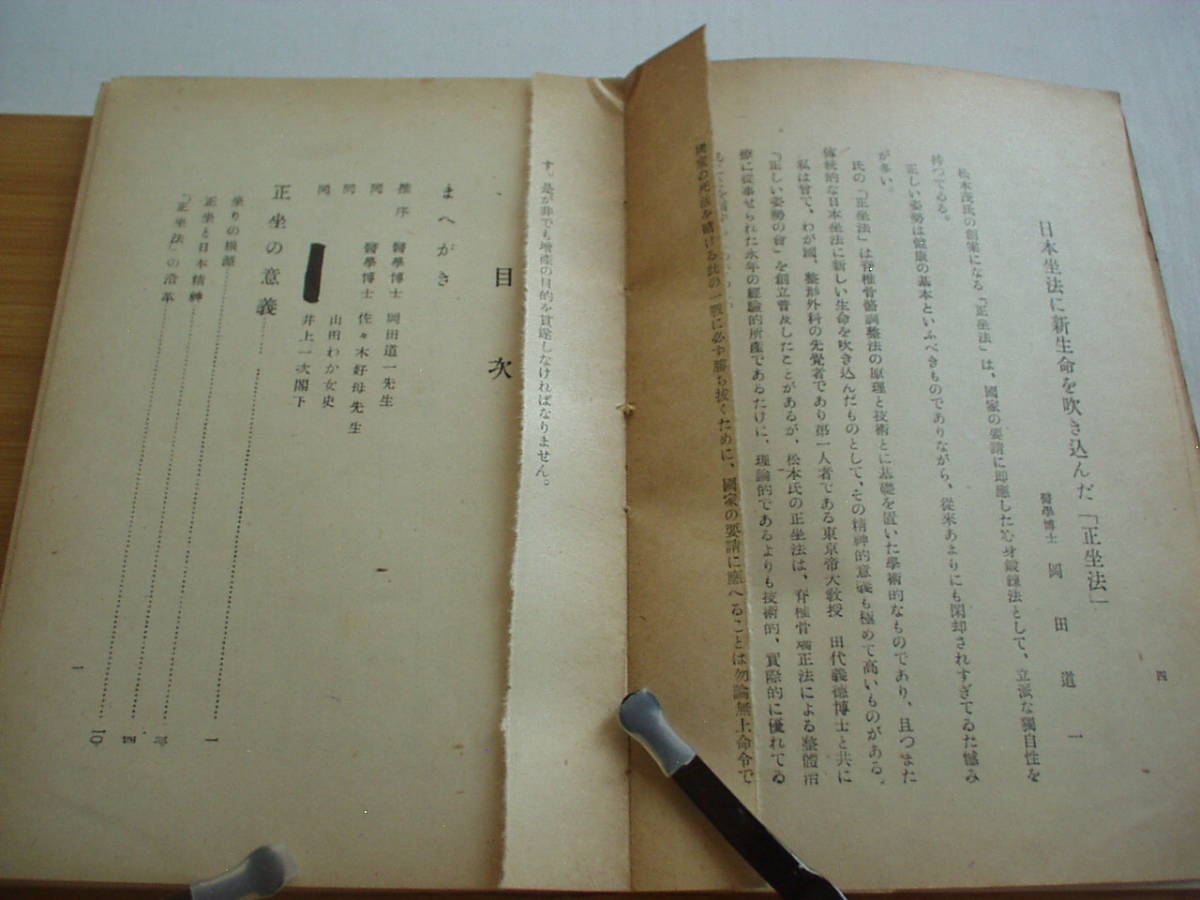 四
日本坐法に新生命を吹き込んだ「正坐法」
醫學博士　岡田道一
松本茂氏の創案になる『正坐法』は、國家の要請に即應した心身鍛錬法として、立派な獨自性を
持つてゐる。
正しい姿勢は健康の基本といふべきものでありながら、從来あまりにも閑却されすぎてゐた憾み
が多い。
氏の『正坐法』は脊椎骨骼調整法の原理と技術とに基礎を置いた學術的なものであり、且つまた
傳統的な日本坐法に新しい生命を吹き込んだものとして、その精神的意義も極めて高いものがある。
私は曾て、わが國、整形外科の先覺者であり第一人者である東京帝大教授　田代義德博士と共に
『正しい姿勢の會』を創立普及したことがあるが、松本氏の正坐法は、脊椎骨矯正法による整體
療に從事せられた永年の經驗的所産であるだけに、理論的であるよりも技術的、實際的に優れてゐ
國家の死活を賭ける此の一戰に必ず勝ち拔くために、國家の要請に應へることは勿論無上命令で
す。是が非でも増産の目的を貫遂しなければなりません。
目次
まへがき
推序　醫學博士　岡田道一先生
同　醫學博士　佐々木好母先生
同　山田わか女史
同　井上一次閣下
正坐の意義
坐りの根源 一
正坐と日本精神
「正坐法」の沿革
一